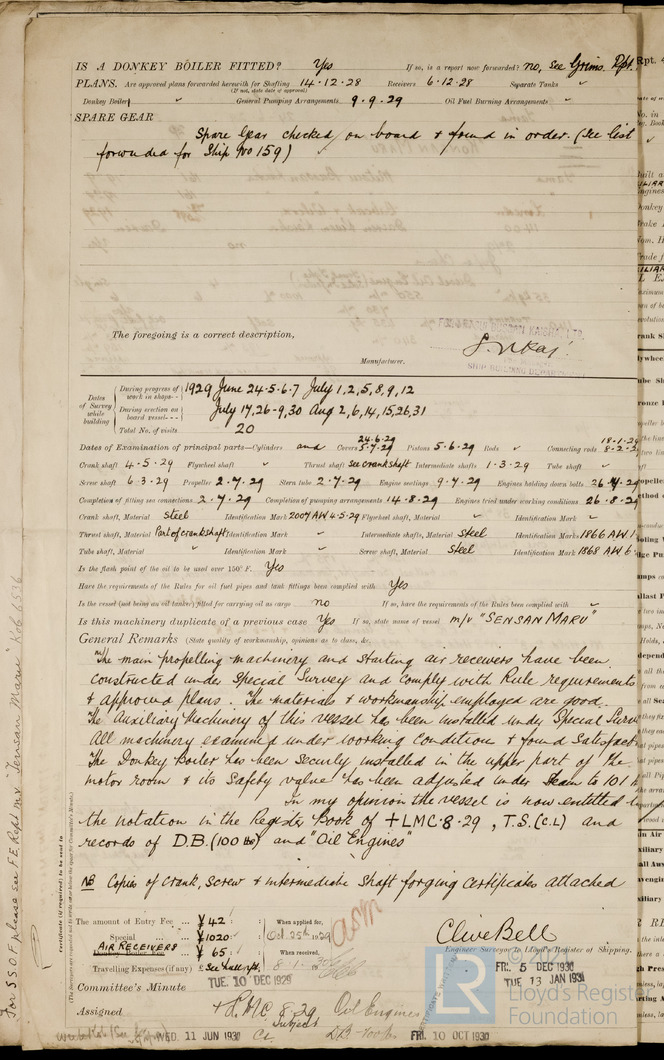 IS A DONKEY BOILER FITTED? Yes If so, is a report now forwarded? no, see Grims. Rpt.
PLANS. Are approved plans forwarded herewith for Shafting 14·12·28 Receivers 6·12·28 Separate Tanks "
(If not, state date of approval)
Donkey Boiler " General Pumping Arrangements 9·9·29 Oil Fuel Burning Arrangements "
SPARE GEAR
Spare Gear checked on board & found in order. (See list
forwarded for Ship No 159)
The foregoing is a correct description,
Manufacturer.
SHIP BUILDING DEPARTMENT
Dates of Survey while building
During progress of work in shops - - 1929 June 24·5·6·7 July 1,2,5,8,9,12
During erection on board vessel - - - July 17,26-9,30 Aug 2,6,14,15,26,31
Total No. of visits 20
Dates of Examination of principal parts—Cylinders and Covers 24·6·29 5·7·29 Pistons 5·6·29 Rods " Connecting rods 18·1·29 8·2·29
Crank shaft 4·5·29 Flywheel shaft " Thrust shaft see crankshaft Intermediate shafts 1·3·29 Tube shaft "
Screw shaft 6·3·29 Propeller 2·7·29 Stern tube 2·7·29 Engine seatings 9·7·29 Engines holding down bolts 26·7·29
Completion of fitting sea connections 2·7·29 Completion of pumping arrangements 14·8·29 Engines tried under working conditions 26·8·29
Crank shaft, Material Steel Identification Mark 2007 AW 4·5·29 Flywheel shaft, Material " Identification Mark "
Thrust shaft, Material Part of crankshaft Identification Mark " Intermediate shafts, Material Steel Identification Marks 1866 AW 1
Tube shaft, Material " Identification Mark " Screw shaft, Material Steel Identification Mark 1868 AW 6
Is the flash point of the oil to be used over 150° F. Yes
Have the requirements of the Rules for oil fuel pipes and tank fittings been complied with Yes
Is the vessel (not being an oil tanker) fitted for carrying oil as cargo no If so, have the requirements of the Rules been complied with "
Is this machinery duplicate of a previous case Yes If so, state name of vessel m/v "SENSAN MARU"
General Remarks (State quality of workmanship, opinions as to class, &c.
The main propelling machinery and starting air receivers have been
constructed under Special Survey and comply with Rule requirements
& approved plans. The materials & workmanship employed are good.
The Auxiliary Machinery of this vessel has been installed under Special Surve
All machinery examined under working condition & found satisfact
The Donkey Boiler has been securely installed in the upper part of the
motor room & its safety valve has been adjusted under steam to 101 lb
In my opinion the vessel is now entitled t
the notation in the Register Book of +LMC·8·29, T.S.(C.L) and
records of D.B.(100 lb) and "Oil Engines"
NB Copies of Crank, Screw & intermediate shaft forging certificates attached
The amount of Entry Fee ... ¥ 42 : When applied for,
Special ... ¥ 1020 : Oct 25th 1929
AIR RECEIVERS
Donkey Boiler Fee ... ¥ 65 : When received,
Travelling Expenses (if any) £ See
Clive Bell
Engineer Surveyor to Lloyd's Register of Shipping.
Committee's Minute TUE. 10 DEC 1929
FRI. 5 DEC 1930
TUE 13 JAN 1931
Assigned + LMC 8·29 Oil Engines
Subject
CL DB-100 lb
WED. 11 JUN 1930
FRI. 10 OCT 1930
For S.S.O.F. please see F.E. Rept m.v. "Tensan Maru" Kob 6536
Certificate (if required) to be sent to
(The Surveyors are requested not to write on or below the space for Committee's Minute.)
LR
Lloyd's Register
Foundation